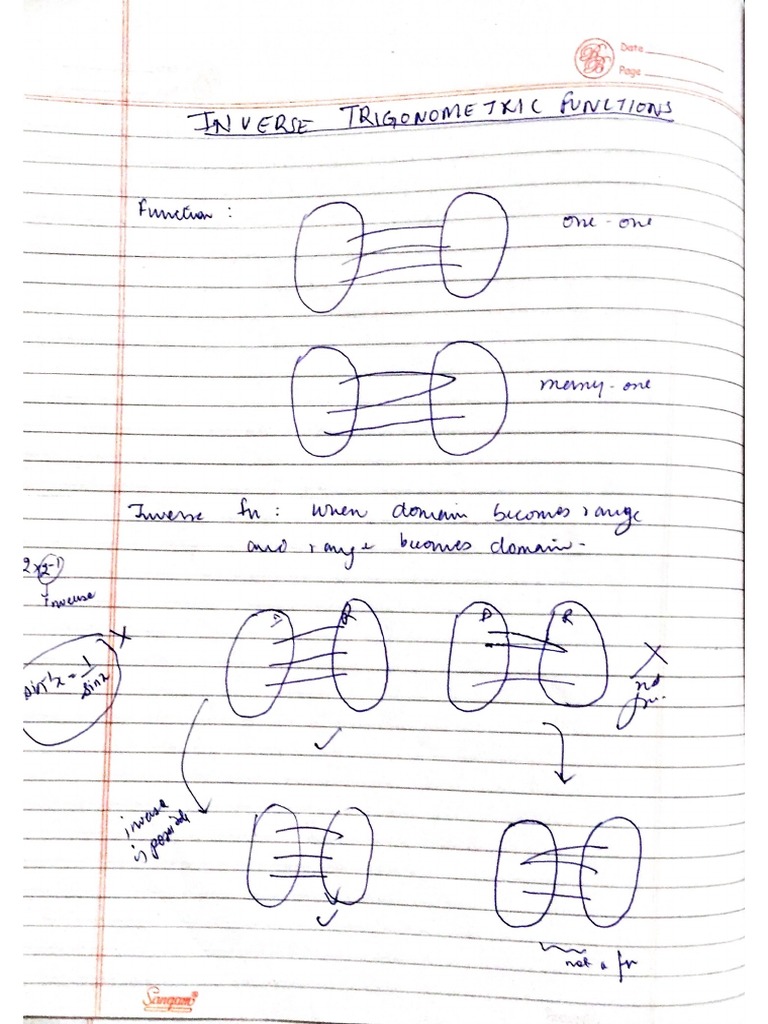 Date
Page
INVERSE TRIGONOMETRIC FUNCTIONS
Function :
one-one
many-one
Inverse fn : when domain becomes range
and range becomes domain.
2 x 2⁻¹
inverse
D R
D R
sin⁻¹x = 1/sinx
not
fn.
inverse
is possible
not a fn
Sangam®